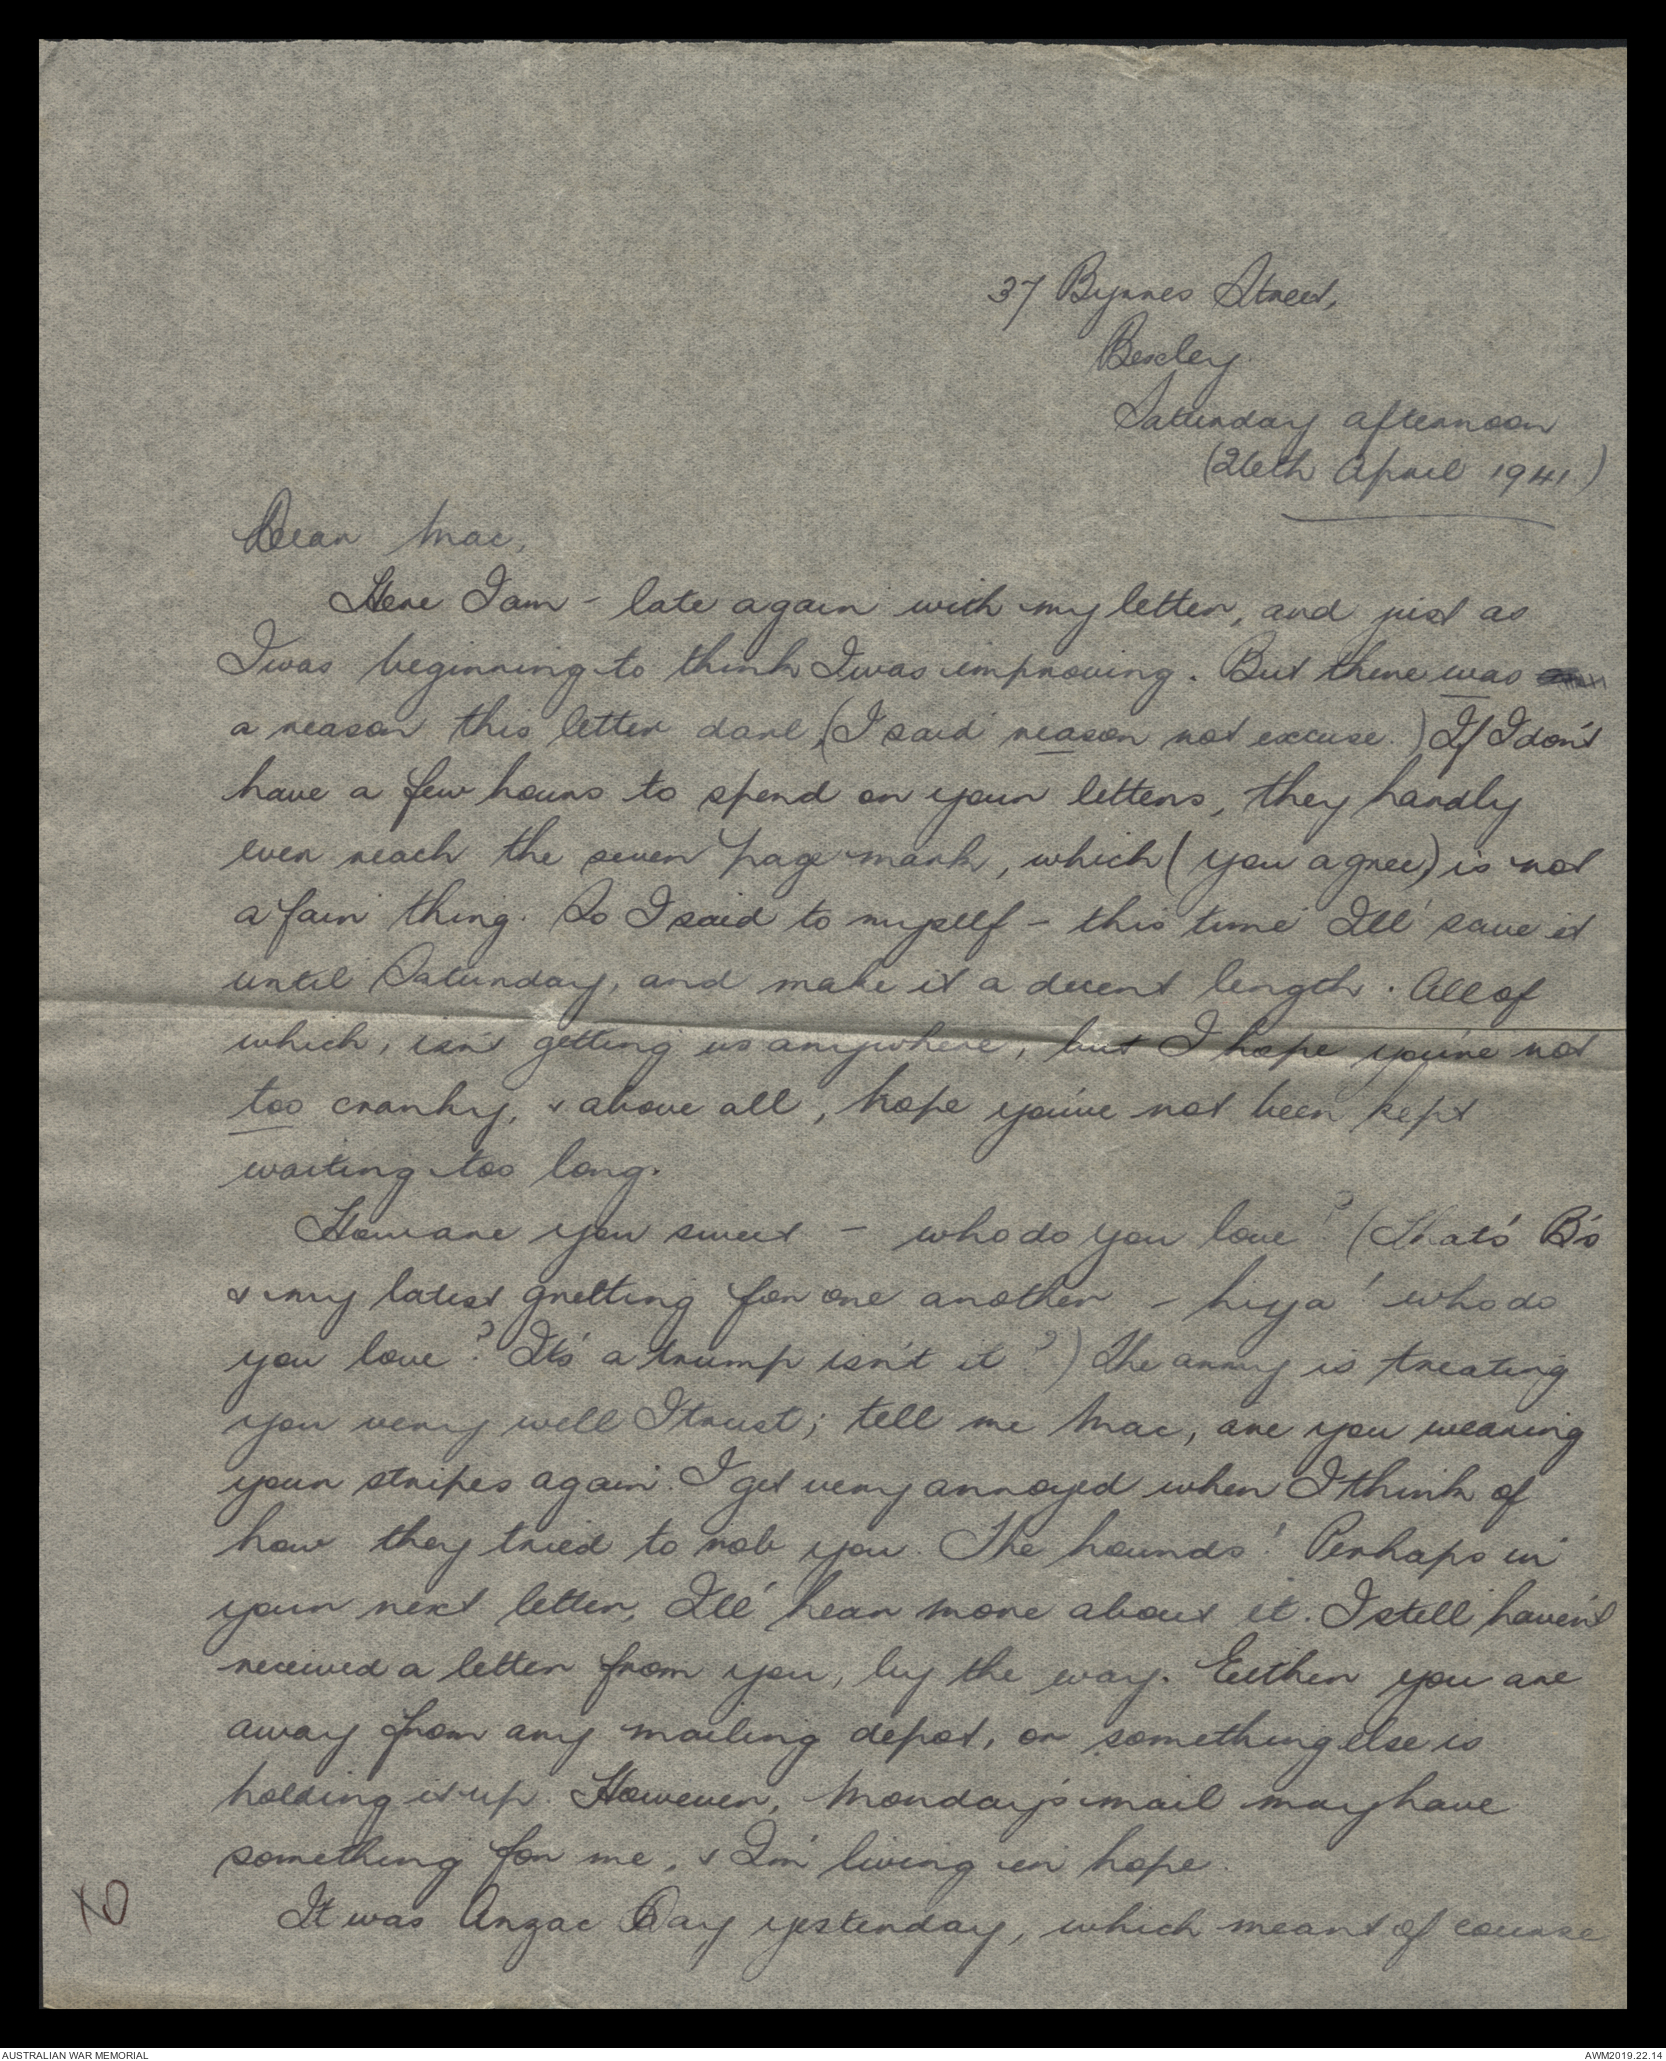 37 Byrnes Street,
Bexley.
Saturday afternoon
(26th April 1941)
Dear Mac,
Here I am - late again with my letter, and just as
I was beginning to think I was improving. But there was
a reason this letter darl, (I said reason not excuse.) If I don't
have a few hours to spend on your letters, they hardly
ever reach the seven page mark, which (you agree) is not
a fair thing. So I said to myself - this time I'll save it
until Saturday, and make it a decent length. All of
which, isn't getting us anywhere, but I hope you're not
too cranky, & above all, hope you've not been kept
waiting too long.
How are you sweet - who do you love? (That's B's
& my latest greeting for one another - hiya! who do
you love? It's a trump isn't it?) The army is treating
you very well I trust; tell me Mac, are you wearing
your stripes again. I get very annoyed when I think of
how they tried to rob you. The hounds! Perhaps in
your next letter, I'll hear more about it. I still haven't
received a letter from you, by the way. Either you are
away from any mailing depot, or something else is
holding it up. However, Monday's mail may have
something for me, & I'm living in hope.
It was Anzac Day yesterday, which meant of course
AUSTRALIAN WAR MEMORIAL
AWM2019.22.14